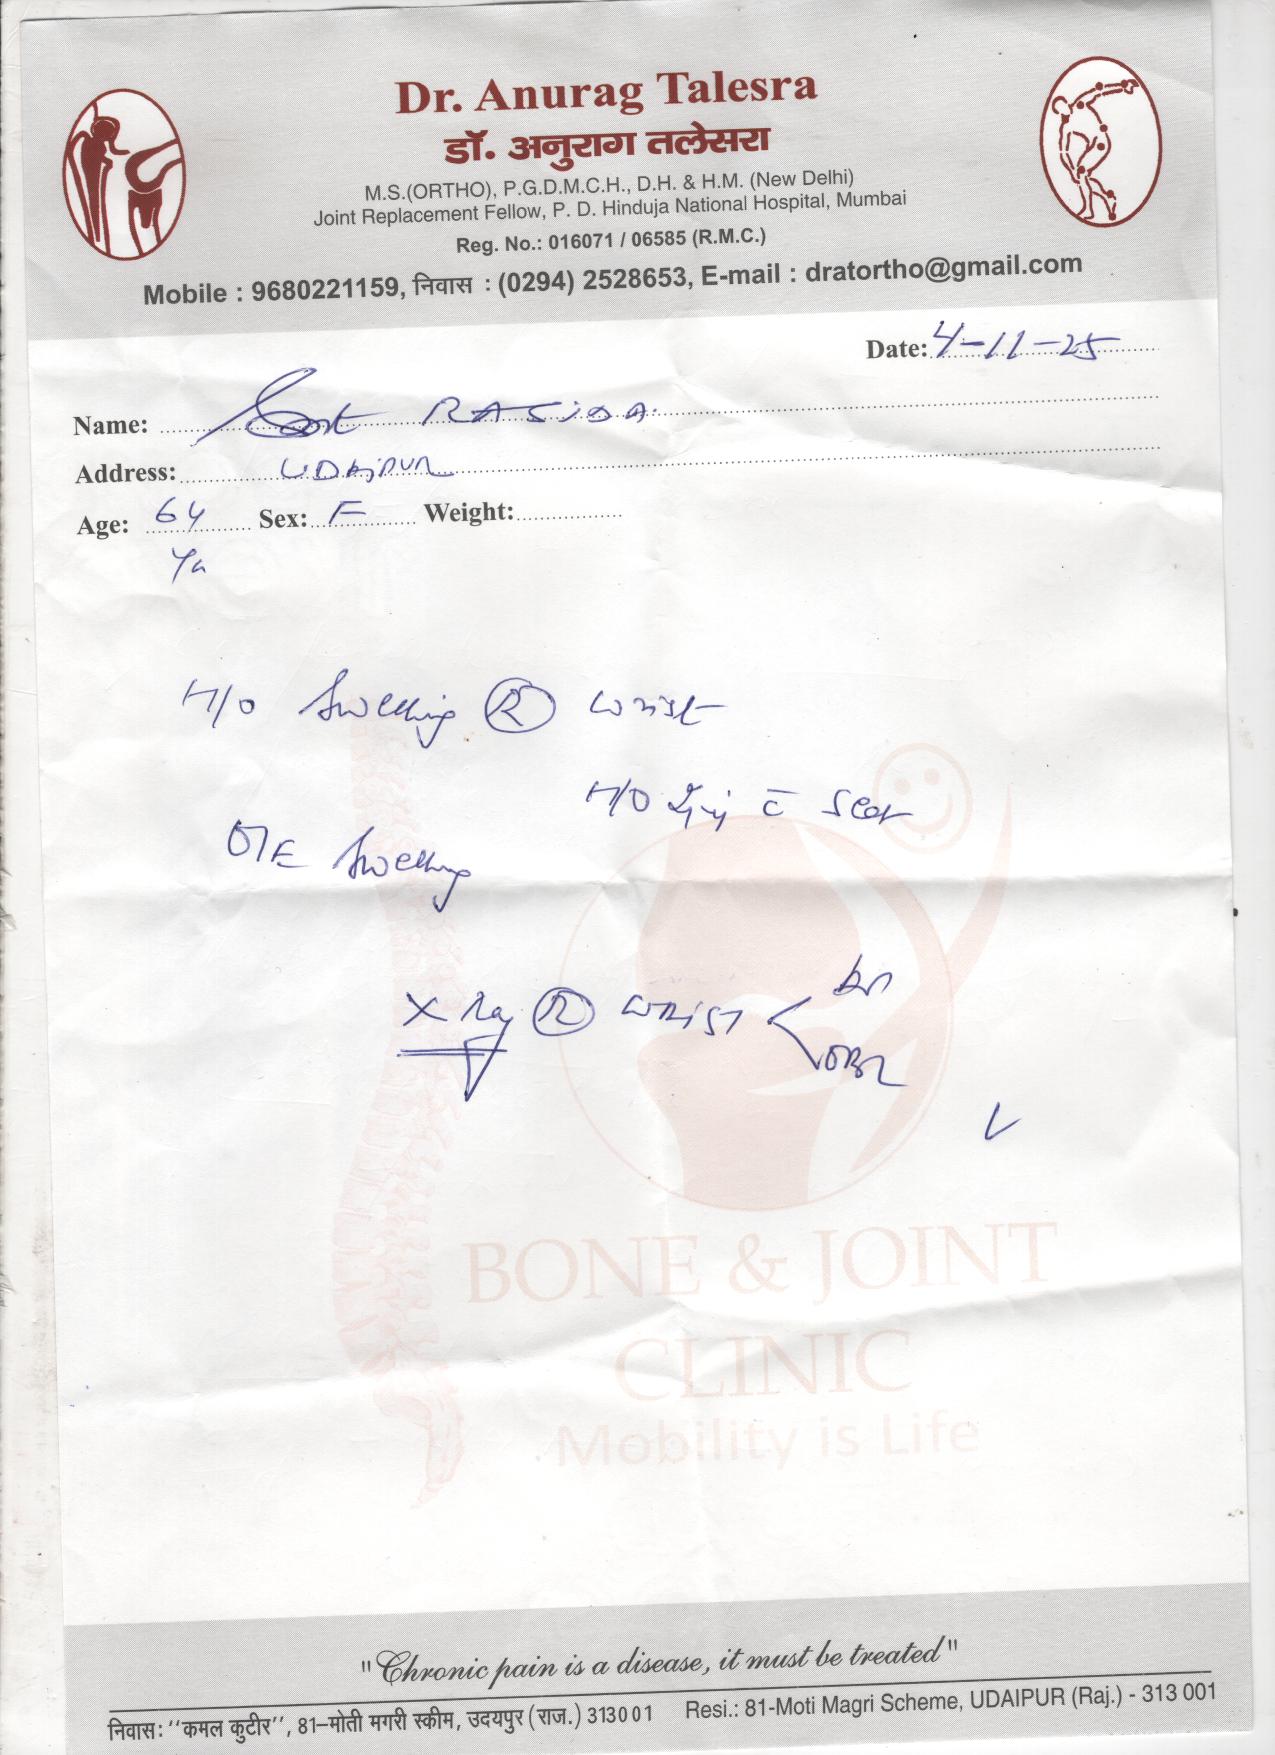 Dr. Anurag Talesra
डॉ. अनुराग तलेसरा
M.S.(ORTHO), P.G.D.M.C.H., D.H. & H.M. (New Delhi)
Joint Replacement Fellow, P. D. Hinduja National Hospital, Mumbai
Reg. No.: 016071 / 06585 (R.M.C.)
Mobile : 9680221159, निवास : (0294) 2528653, E-mail : dratortho@gmail.com
Date: 4-11-25
Name: RASIDA
Address: UDAIPUR
Age: 64 Sex: F Weight:
H/O Swelling R wrist
H/O c̄ scar
O/E Swelling
X Ray R WRIST
OBL
BONE & JOINT
CLINIC
Mobility is Life
"Chronic pain is a disease, it must be treated"
निवास: ‘‘कमल कुटीर’’, 81–मोती मगरी स्कीम, उदयपुर (राज.) 313001 Resi.: 81-Moti Magri Scheme, UDAIPUR (Raj.) - 313 001